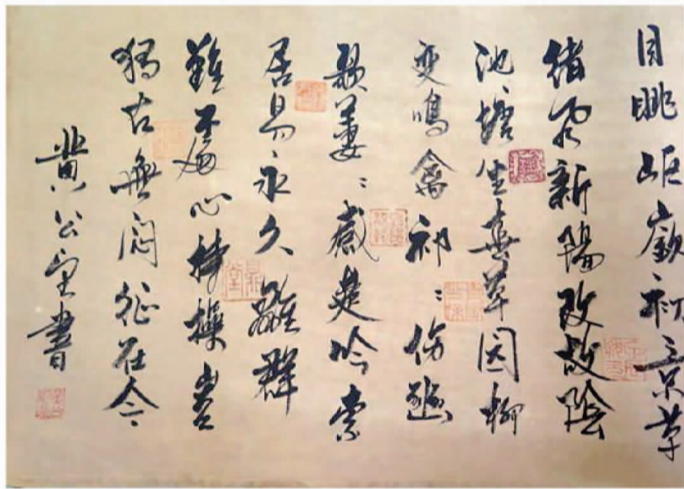 目眺嶇嶔初景革
緒風新陽改故陰
池塘生春草園柳
變鳴禽祁〻傷豳
歌萋〻感楚吟索
居易永久離群
難處心持操豈
獨古無悶征在今
黄公望書